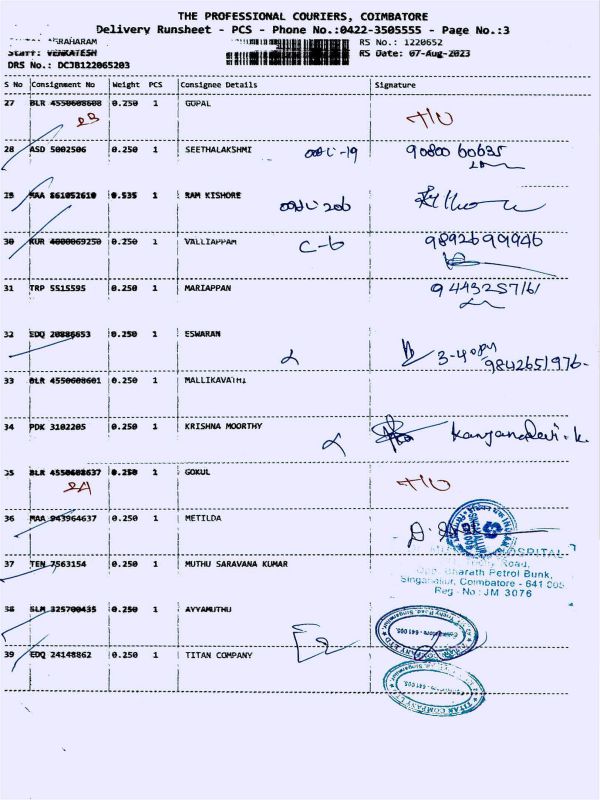 THE PROFESSIONAL COURIERS, COIMBATORE
Delivery Runsheet - PCS - Phone No.:0422-3505555 - Page No.:3
RS No.: 1220652
Staff: VENKATESH
RS Date: 07-Aug-2023
DRS No.: DCJB122065203
S No Consignment No Weight PCS Consignee Details Signature
27 BLR 4550608608 0.250 1 GOPAL
28 ASD 5002506 0.250 1 SEETHALAKSHMI
9080060635
29 MAA 861052610 0.535 1 RAM KISHORE
30 KUR 4000069250 0.250 1 VALLIAPPAM C-6 9892699946
31 TRP 5515595 0.250 1 MARIAPPAN
9443257161
32 EDQ 20886653 0.250 1 ESWARAN
9842651976-
33 BLR 4550608601 0.250 1 MALLIKAVATHI
34 PDK 3102205 0.250 1 KRISHNA MOORTHY
35 BLR 4550608637 0.250 1 GOKUL
36 MAA 943964637 0.250 1 METILDA
HOSPITAL
Road,
Opp. Bharath Petrol Bunk,
37 TEN 7563154 0.250 1 MUTHU SARAVANA KUMAR
Singanallur, Coimbatore - 641 005
Reg. No : JM 3076
38 SLM 325700435 0.250 1 AYYAMUTHU
39 EDQ 24148862 0.250 1 TITAN COMPANY